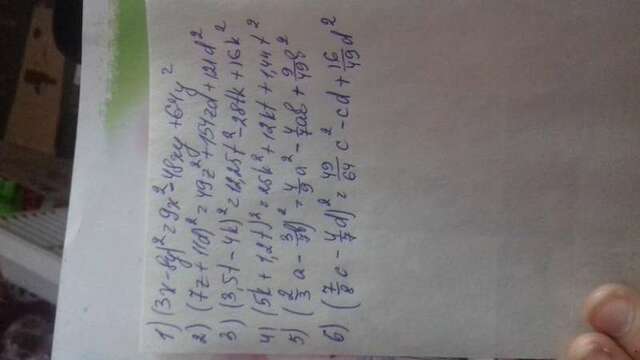 1) (3x-8y)²=9x²-48xy+64y²
2) (7z+11d)²=49z²+154zd+121d²
3) (3,5t-4k)²=12,25t²-28tk+16k²
4) (5k+1,2t)²=25k²+12kt+1,44t²
5) (2/3a-3/7b)²=4/9a²-4/7ab+9/49b²
6) (7/8c-4/7d)²=49/64c²-cd+16/49d²